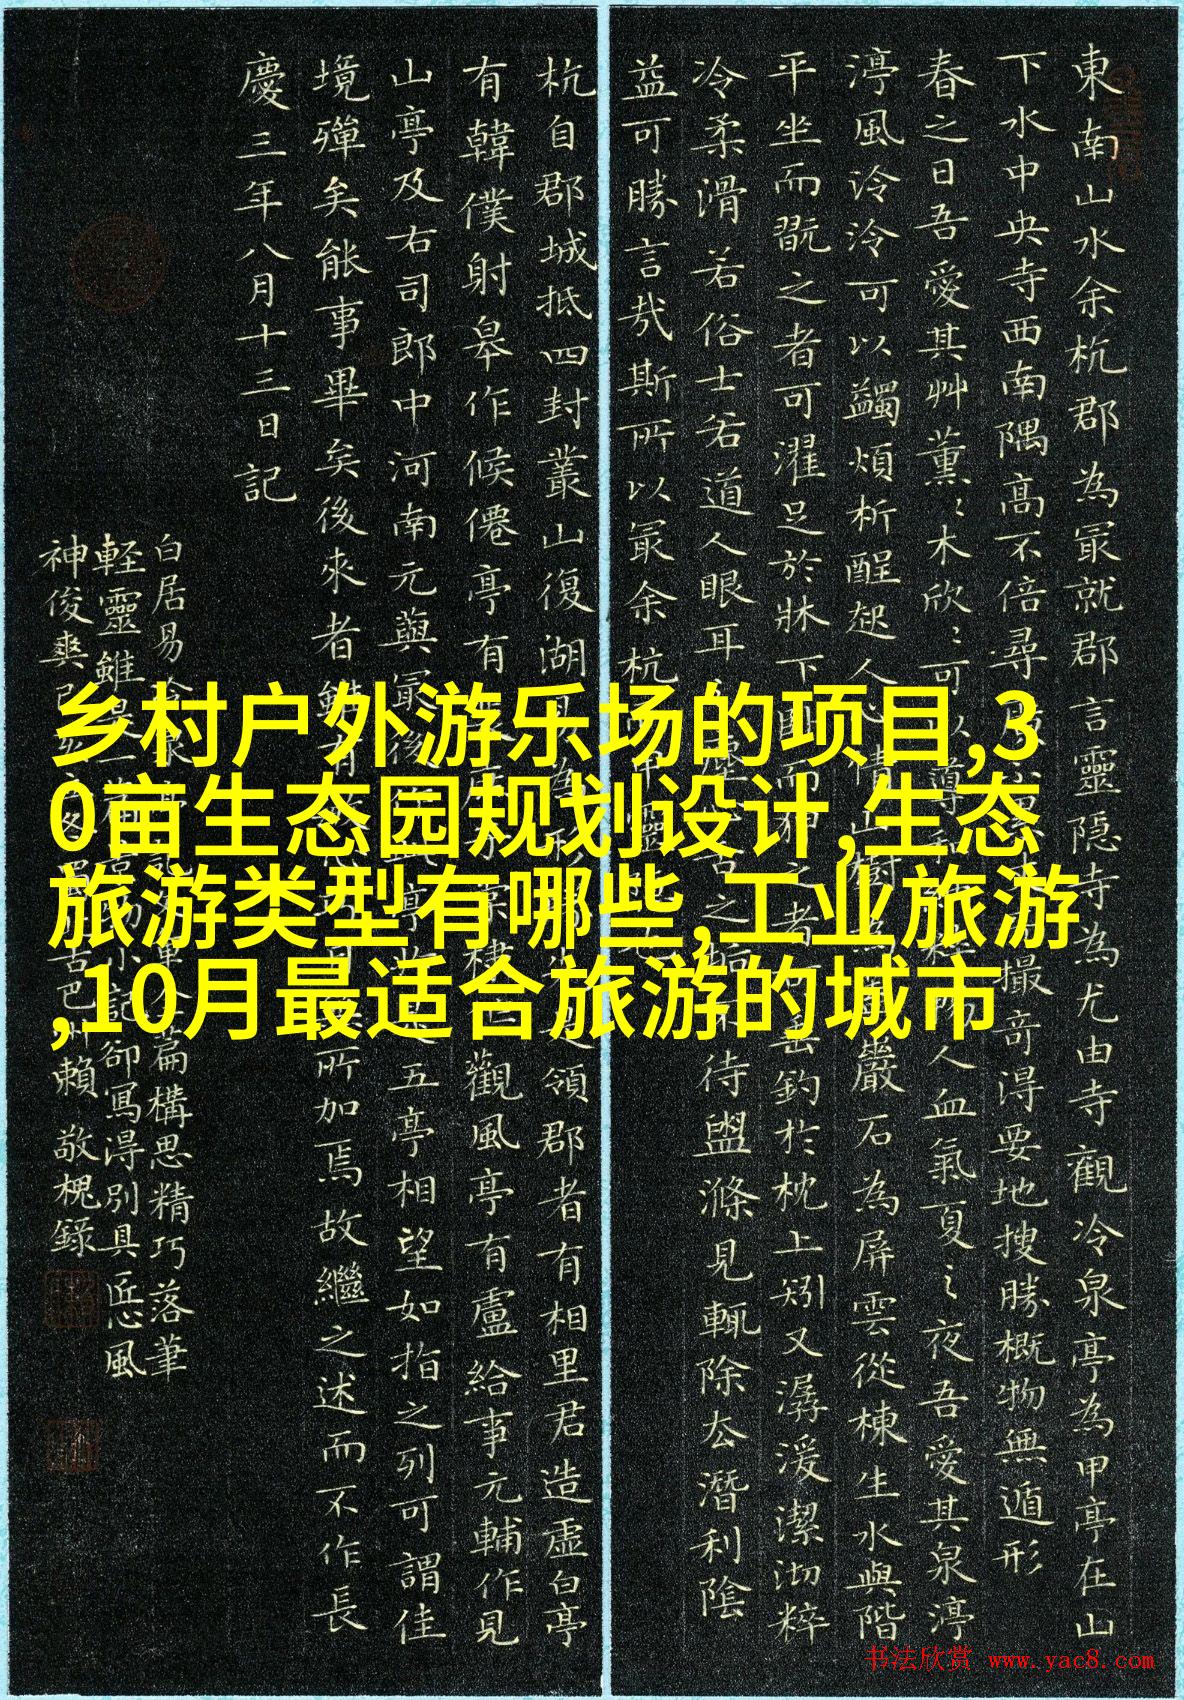 東南山水余杭郡為最就郡言靈隐寺為尤由寺觀冷泉亭為甲亭在山
下水中央寺西南隅高不倍尋撮奇得要地搜勝概物無遁形
春之日吾愛其艸薰〻木欣〻可以導人血氣夏之夜吾愛其泉渟
渟風泠泠可以蠲煩析酲起人心情山樹為巖石為屏雲從棟生水與階
平坐而翫之者可濯足於牀下臥而狎之者可垂釣於枕上矧又潺湲潔沏粹
冷柔滑若俗士若道人眼耳之待盥滌見輒除去潛利陰
益可勝言哉斯所以最余杭而甲靈
杭自郡城抵四封叢山復湖易為形領郡者有相里君造虛白亭
有韓僕射皋作候僊亭有觀風亭有盧給事元輔作見
山亭及右司郎中河南元藇最後亭五亭相望如指之列可謂佳
境殫矣能事畢矣後來者雖有所加焉故繼之述而不作長
慶三年八月十三日記
白居易篇構思精巧落筆
軽靈雖是一卻寫得別具匠心風
神俊爽古巴州賴敬槐錄
乡村户外游乐场的项目,3
0亩生态园规划设计,生态
旅游类型有哪些,工业旅游
,10月最适合旅游的城市
书法欣赏 www.yac8.com